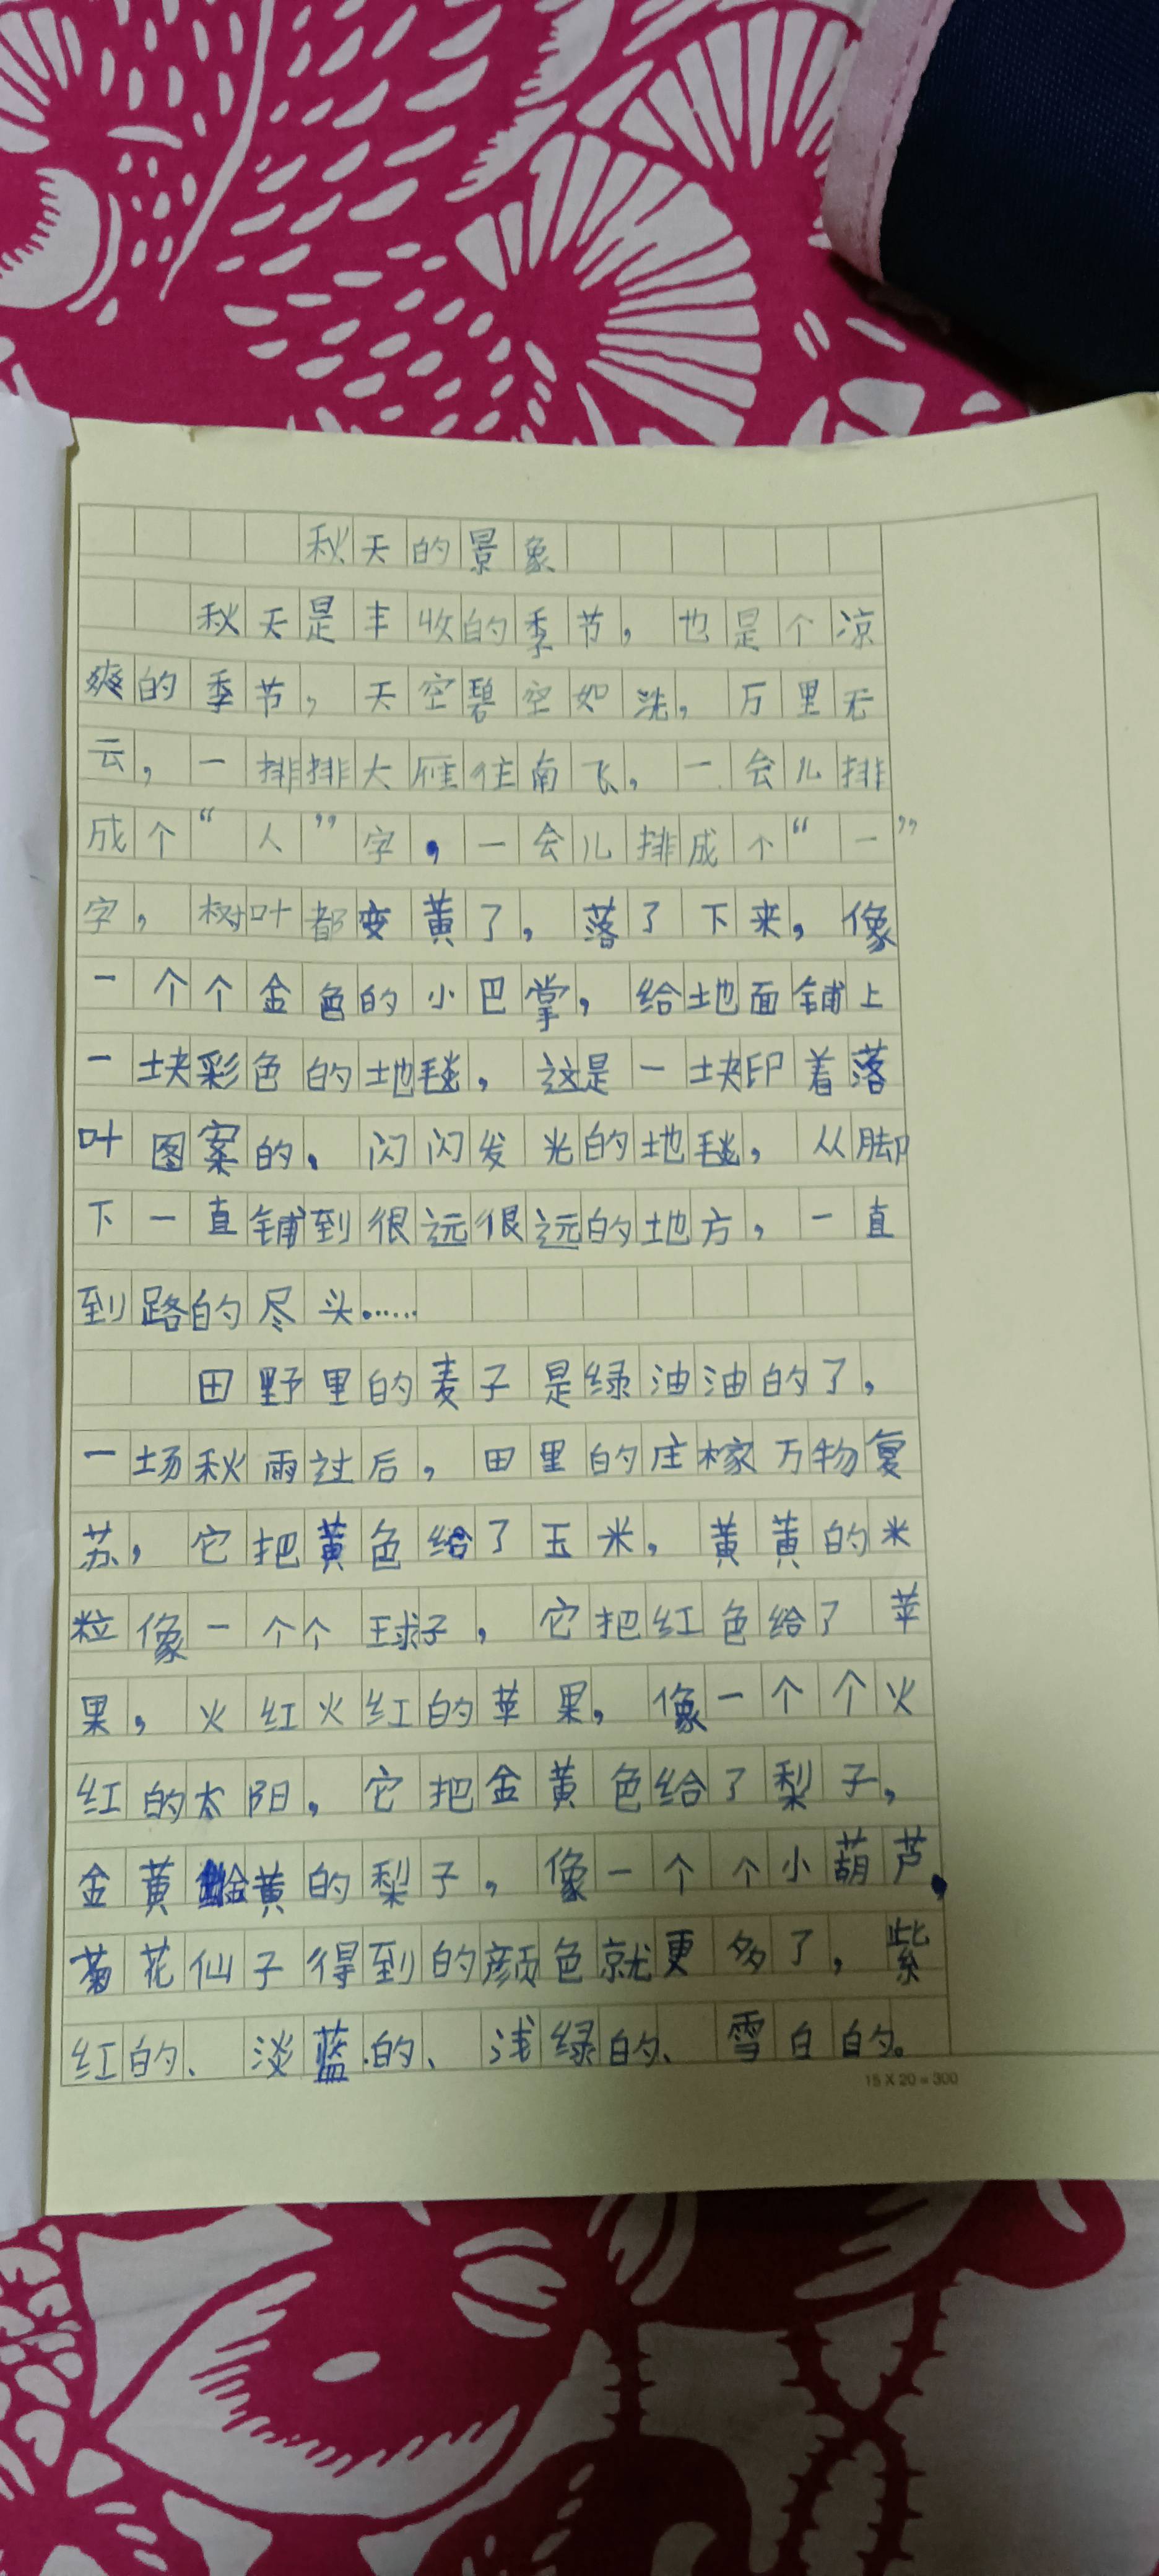 秋天的景象
秋天是丰收的季节，也是个凉
爽的季节，天空碧空如洗，万里无
云，一排排大雁往南飞，一会儿排
成个“人”字，一会儿排成个“一”
字，树叶都变黄了，落了下来，像
一个个金色的小巴掌，给地面铺上
一块彩色的地毯，这是一块印着落
叶图案的、闪闪发光的地毯，从脚
下一直铺到很远很远的地方，一直
到路的尽头……
田野里的麦子是绿油油的了，
一场秋雨过后，田里的庄稼万物复
苏，它把黄色给了玉米，黄黄的米
粒像一个个球子，它把红色给了苹
果，火红火红的苹果，像一个个火
红的太阳，它把金黄色给了梨子，
金黄金黄的梨子，像一个个小葫芦，
菊花仙子得到的颜色就更多了，紫
红的、淡蓝的、浅绿的、雪白的。
15 X 20 = 300